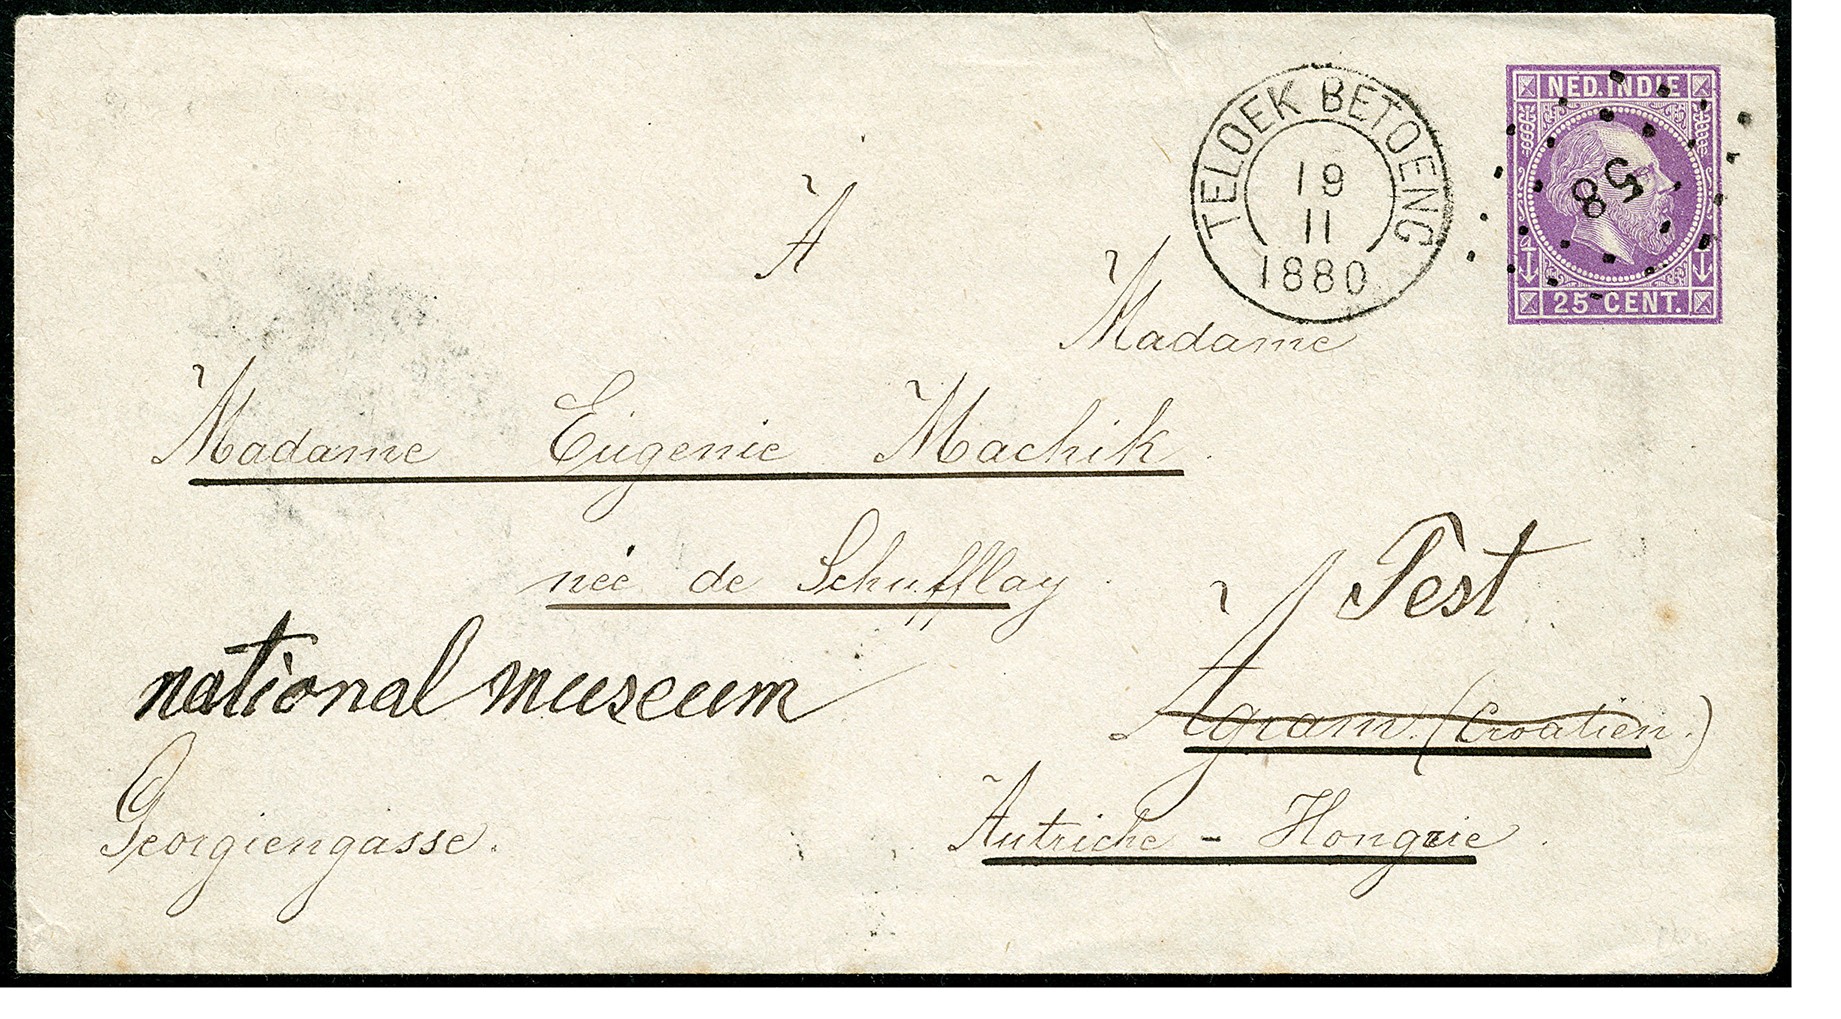 NED. INDIE
TELOEK BETOENG
19
11
1880
58
25 CENT.
A
Madame
Madame Eugenie Machik
née de Schufflay
Pest
national museum
Agram. (Croatien.)
Georgiengasse.
Autriche - Hongrie.